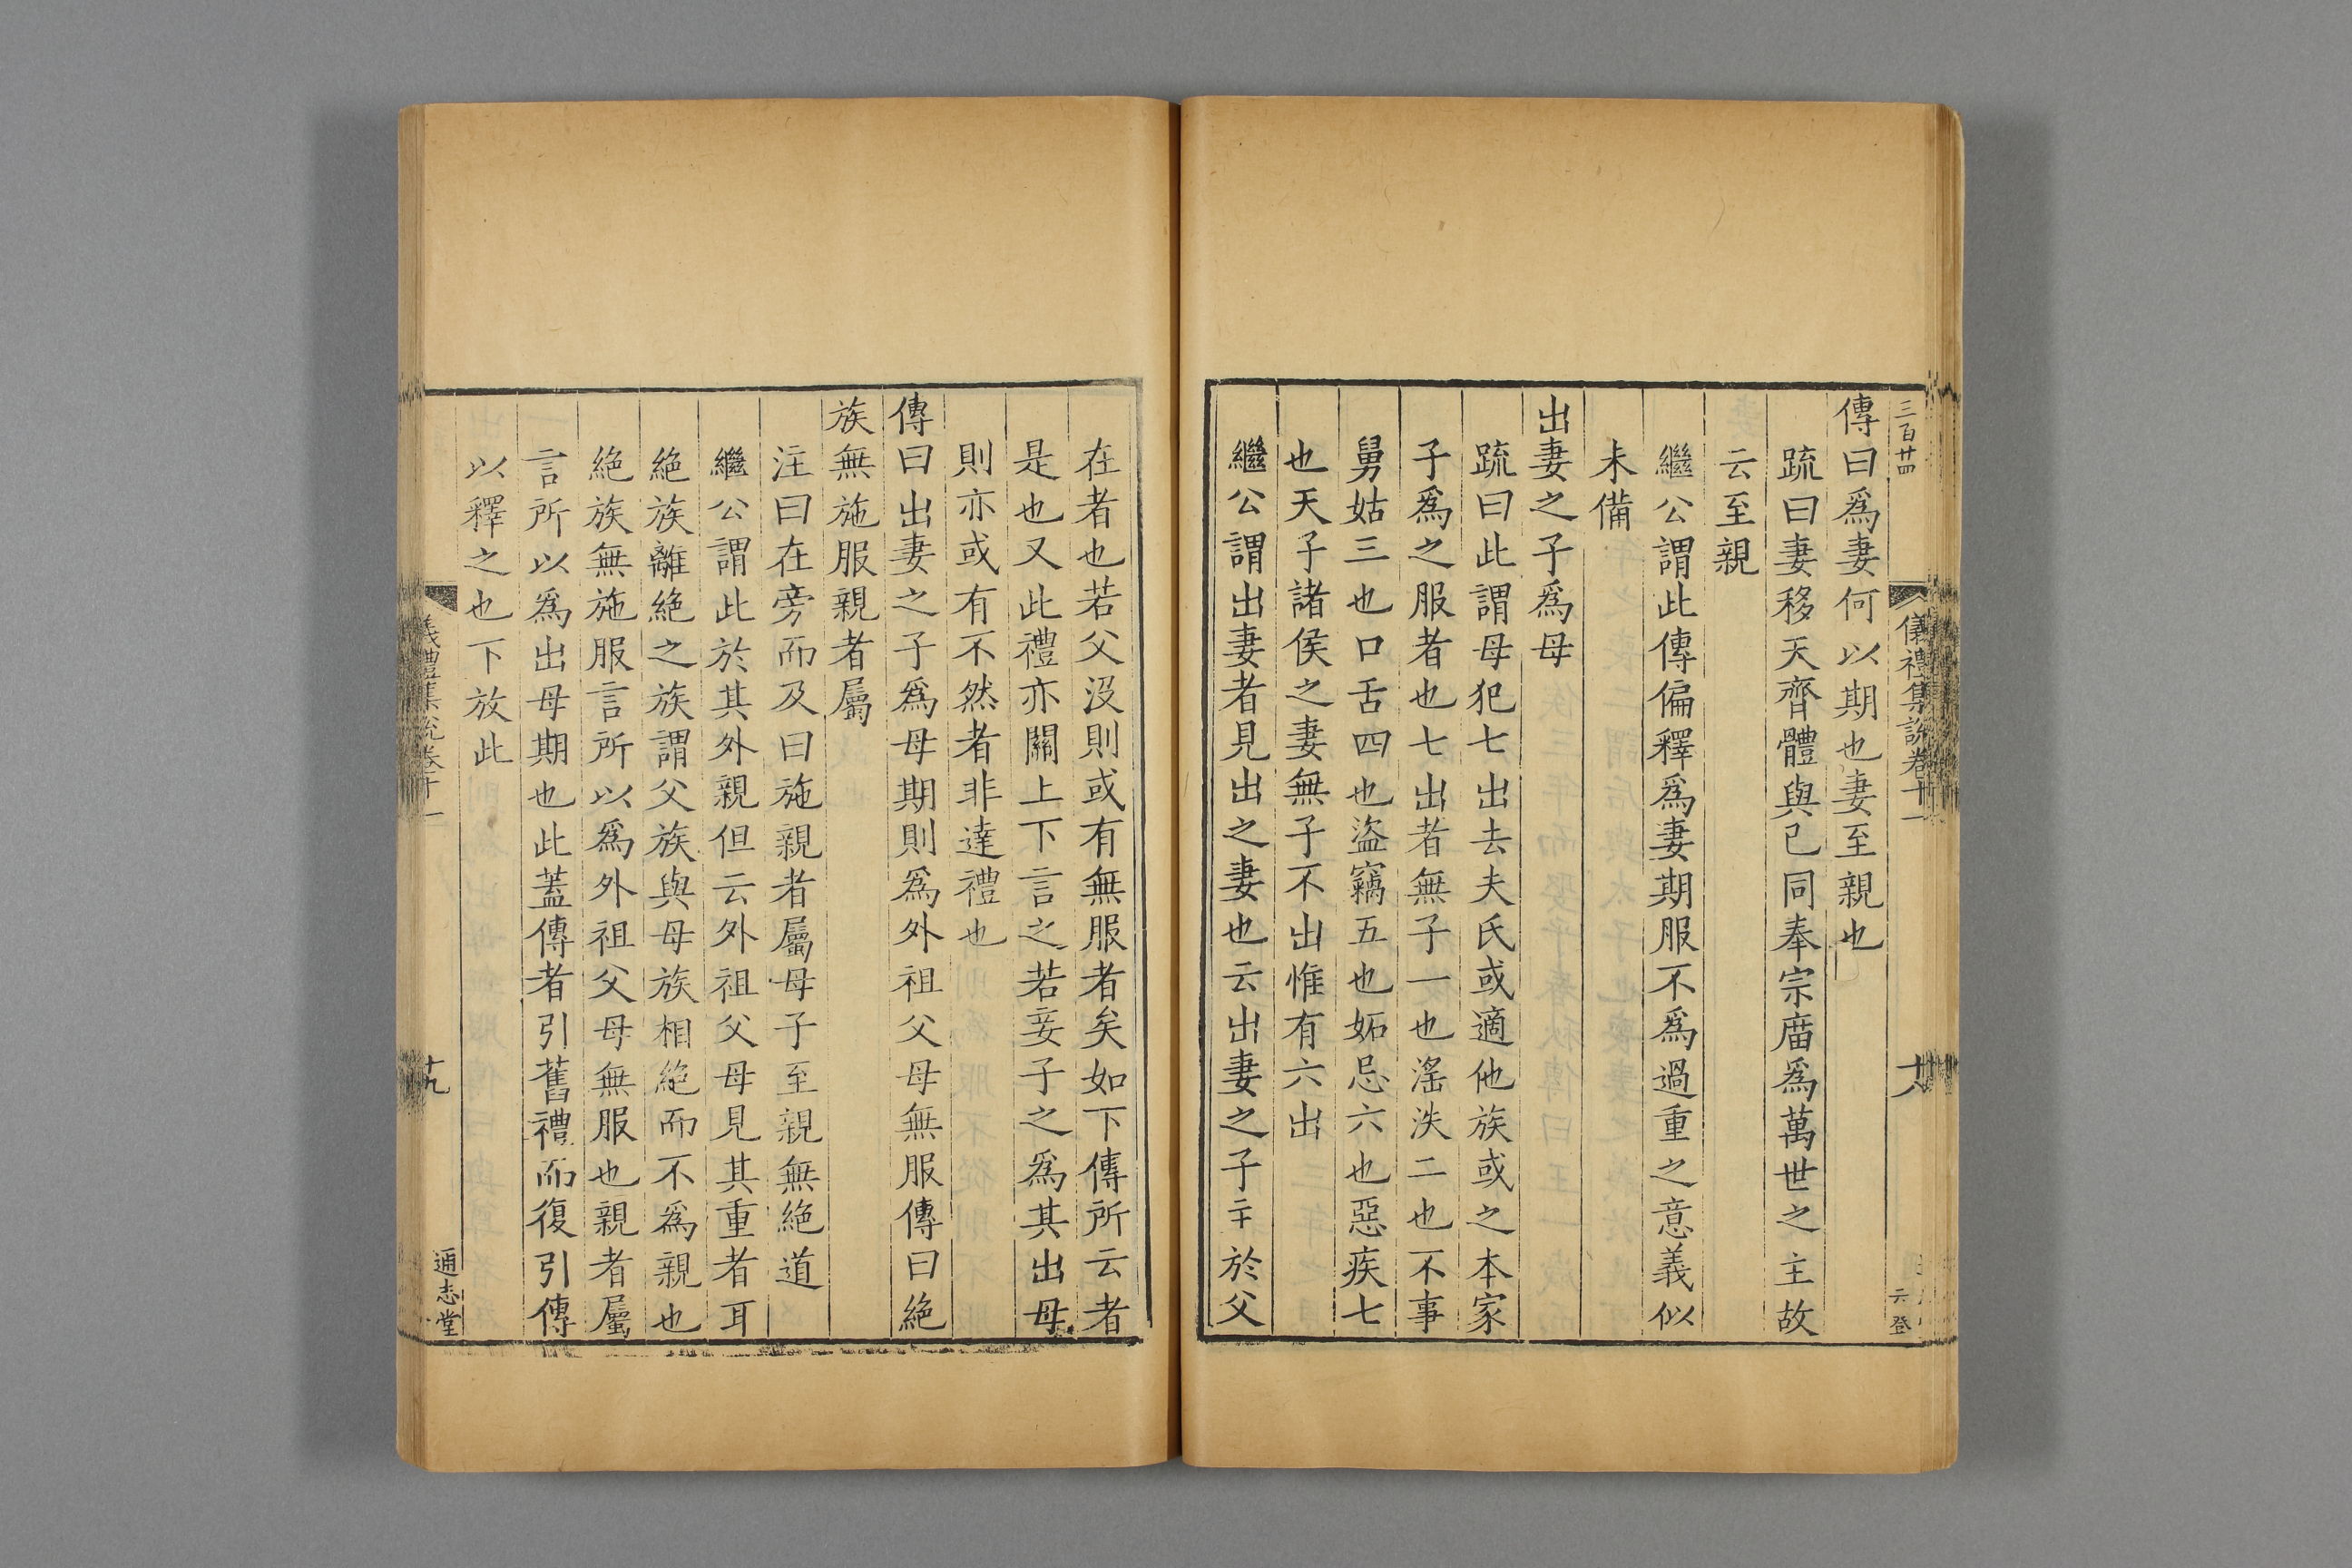 三百廿四
儀禮集說卷十一
十八
六登
傳曰爲妻何以期也妻至親也
疏曰妻移天齊體與己同奉宗庿爲萬世之主故
云至親
繼公謂此傳偏釋爲妻期服不爲過重之意義似
未備
出妻之子爲母
疏曰此謂母犯七出去夫氏或適他族或之本家
子爲之服者也七出者無子一也滛泆二也不事
舅姑三也口舌四也盜竊五也妬忌六也惡疾七
也天子諸侯之妻無子不出惟有六出
繼公謂出妻者見出之妻也云出妻之子主於父
在者也若父沒則或有無服者矣如下傳所云者
是也又此禮亦關上下言之若妾子之爲其出母
則亦或有不然者非達禮也
傳曰出妻之子爲母期則爲外祖父母無服傳曰絶
族無施服親者屬
注曰在旁而及曰施親者屬母子至親無絶道
繼公謂此於其外親但云外祖父母見其重者耳
絶族離絶之族謂父族與母族相絶而不爲親也
絶族無施服言所以爲外祖父母無服也親者屬
言所以爲出母期也此蓋傳者引舊禮而復引傳
以釋之也下放此
儀禮集說卷十一
十九
通志堂